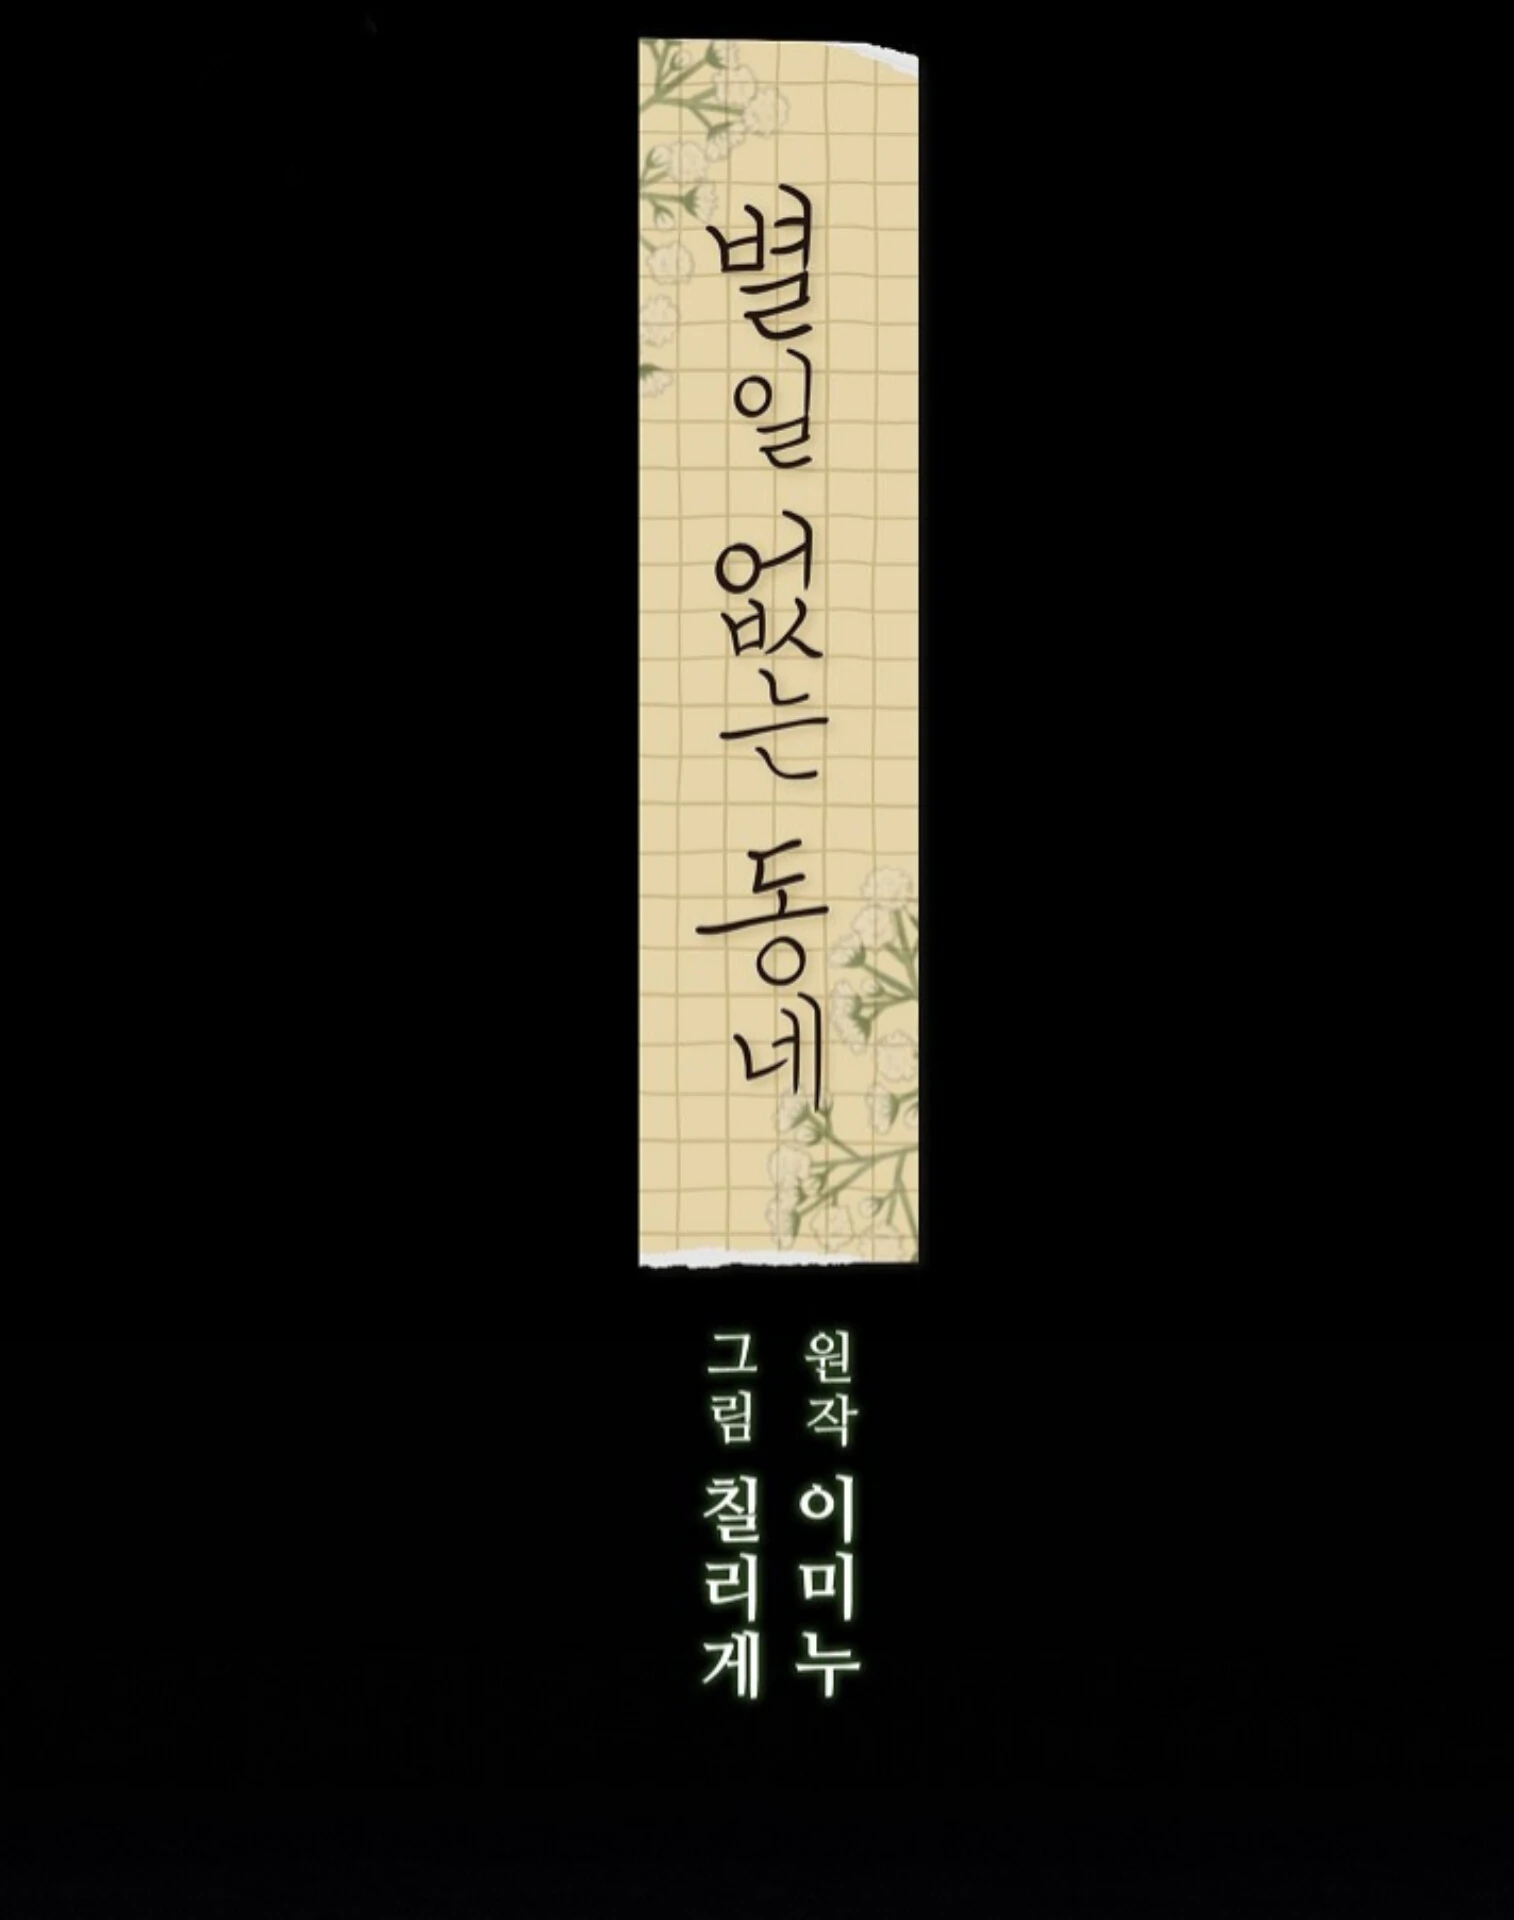 별일 없는 동네
원작 이미누
그림 칠리게